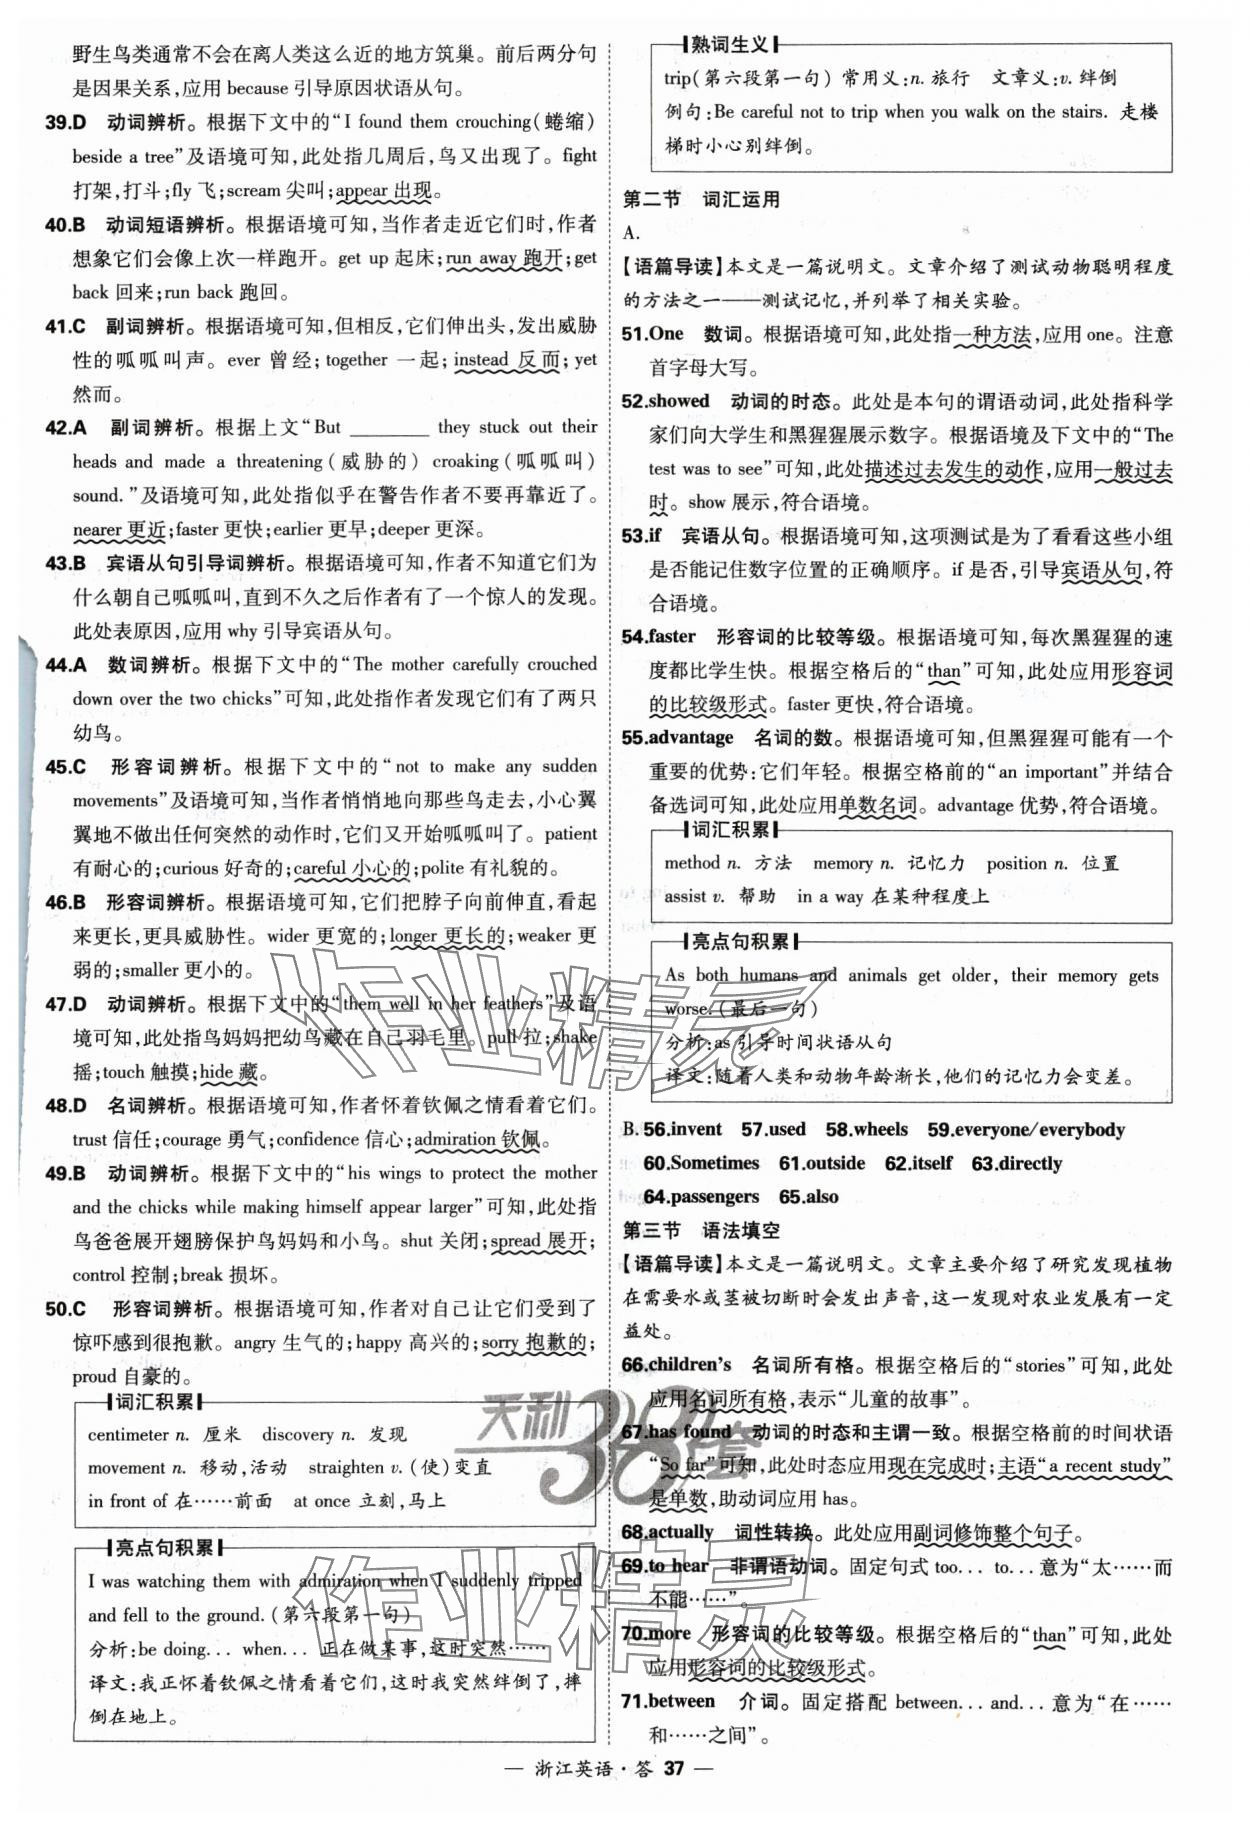 野生鸟类通常不会在离人类这么近的地方筑巢。前后两分句
是因果关系,应用 because 引导原因状语从句。
39.D 动词辨析。根据下文中的“I found them crouching(蜷缩)
beside a tree”及语境可知,此处指几周后,鸟又出现了。fight
打架,打斗;fly 飞;scream 尖叫;appear 出现。
40.B 动词短语辨析。根据语境可知,当作者走近它们时,作者
想象它们会像上次一样跑开。get up 起床;run away 跑开;get
back 回来;run back 跑回。
41.C 副词辨析。根据语境可知,但相反,它们伸出头,发出威胁
性的呱呱叫声。ever 曾经;together 一起;instead 反而;yet
然而。
42.A 副词辨析。根据上文“But ________ they stuck out their
heads and made a threatening(威胁的) croaking(呱呱叫)
sound.”及语境可知,此处指似乎在警告作者不要再靠近了。
nearer 更近;faster 更快;earlier 更早;deeper 更深。
43.B 宾语从句引导词辨析。根据语境可知,作者不知道它们为
什么朝自己呱呱叫,直到不久之后作者有了一个惊人的发现。
此处表原因,应用 why 引导宾语从句。
44.A 数词辨析。根据下文中的“The mother carefully crouched
down over the two chicks”可知,此处指作者发现它们有了两只
幼鸟。
45.C 形容词辨析。根据下文中的“not to make any sudden
movements”及语境可知,当作者悄悄地向那些鸟走去,小心翼
翼地不做出任何突然的动作时,它们又开始呱呱叫了。patient
有耐心的;curious 好奇的;careful 小心的;polite 有礼貌的。
46.B 形容词辨析。根据语境可知,它们把脖子向前伸直,看起
来更长,更具威胁性。wider 更宽的;longer 更长的;weaker 更
弱的;smaller 更小的。
47.D 动词辨析。根据下文中的“them well in her feathers”及语
境可知,此处指鸟妈妈把幼鸟藏在自己羽毛里。pull 拉;shake
摇;touch 触摸;hide 藏。
48.D 名词辨析。根据语境可知,作者怀着钦佩之情看着它们。
trust 信任;courage 勇气;confidence 信心;admiration 钦佩。
49.B 动词辨析。根据下文中的“his wings to protect the mother
and the chicks while making himself appear larger”可知,此处指
鸟爸爸展开翅膀保护鸟妈妈和小鸟。shut 关闭;spread 展开;
control 控制;break 损坏。
50.C 形容词辨析。根据语境可知,作者对自己让它们受到了
惊吓感到很抱歉。angry 生气的;happy 高兴的;sorry 抱歉的;
proud 自豪的。
词汇积累
centimeter n. 厘米 discovery n. 发现
movement n. 移动,活动 straighten v. (使)变直
in front of 在……前面 at once 立刻,马上
亮点句积累
I was watching them with admiration when I suddenly tripped
and fell to the ground.(第六段第一句)
分析:be doing... when... 正在做某事,这时突然……
译文:我正怀着钦佩之情看着它们,这时我突然绊倒了,摔
倒在地上。
熟词生义
trip(第六段第一句) 常用义:n. 旅行 文章义:v. 绊倒
例句:Be careful not to trip when you walk on the stairs. 走楼
梯时小心别绊倒。
第二节 词汇运用
A.
【语篇导读】本文是一篇说明文。文章介绍了测试动物聪明程度
的方法之一——测试记忆,并列举了相关实验。
51.One 数词。根据语境可知,此处指一种方法,应用 one。注意
首字母大写。
52.showed 动词的时态。此处是本句的谓语动词,此处指科学
家们向大学生和黑猩猩展示数字。根据语境及下文中的“The
test was to see”可知,此处描述过去发生的动作,应用一般过去
时。show 展示,符合语境。
53.if 宾语从句。根据语境可知,这项测试是为了看看这些小组
是否能记住数字位置的正确顺序。if 是否,引导宾语从句,符
合语境。
54.faster 形容词的比较等级。根据语境可知,每次黑猩猩的速
度都比学生快。根据空格后的“than”可知,此处应用形容词
的比较级形式。faster 更快,符合语境。
55.advantage 名词的数。根据语境可知,但黑猩猩可能有一个
重要的优势:它们年轻。根据空格前的“an important”并结合
备选词可知,此处应用单数名词。advantage 优势,符合语境。
词汇积累
method n. 方法 memory n. 记忆力 position n. 位置
assist v. 帮助 in a way 在某种程度上
亮点句积累
As both humans and animals get older, their memory gets
worse.(最后一句)
分析:as 引导时间状语从句
译文:随着人类和动物年龄渐长,他们的记忆力会变差。
B. 56.invent 57.used 58.wheels 59.everyone/everybody
60.Sometimes 61.outside 62.itself 63.directly
64.passengers 65.also
第三节 语法填空
【语篇导读】本文是一篇说明文。文章主要介绍了研究发现植物
在需要水或茎被切断时会发出声音,这一发现对农业发展有一定
益处。
66.children's 名词所有格。根据空格后的“stories”可知,此处
应用名词所有格,表示“儿童的故事”。
67.has found 动词的时态和主谓一致。根据空格前的时间状语
“So far”可知,此处时态应用现在完成时;主语“a recent study”
是单数,助动词应用 has。
68.actually 词性转换。此处应用副词修饰整个句子。
69.to hear 非谓语动词。固定句式 too... to...,意为“太……而
不能……”。
70.more 形容词的比较等级。根据空格后的“than”可知,此处
应用形容词的比较级形式。
71.between 介词。固定搭配 between... and...,意为“在……
和……之间”。
作业精灵
天利38套
作业精灵
— 浙江英语·答 37 —